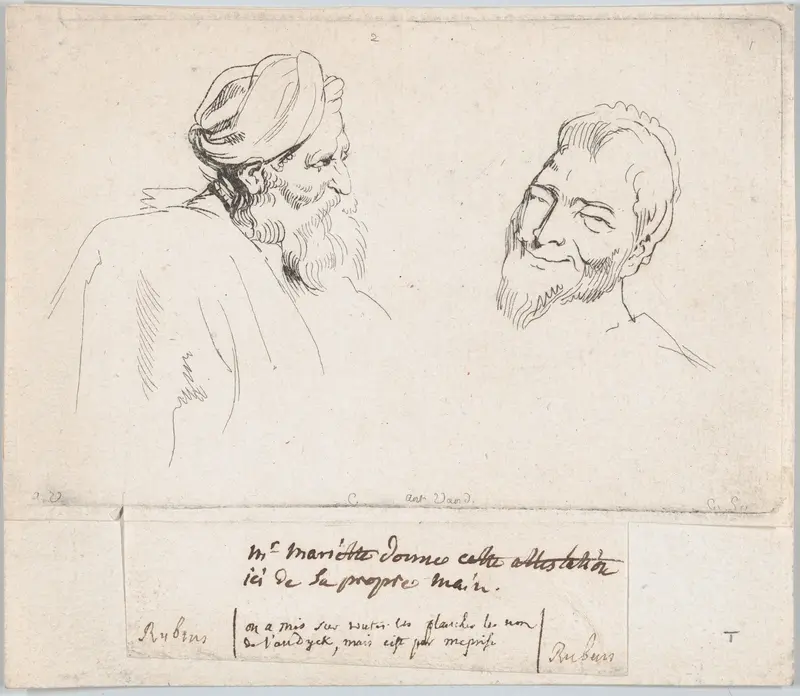 2
1
a. V.
C
ant. Vand.
mr. Mariette donne cette attestation
ici de sa propre main.
on a mis sur toutes les planches le nom
de Vandyck, mais c'est par meprise
Rubens
Rubens
T